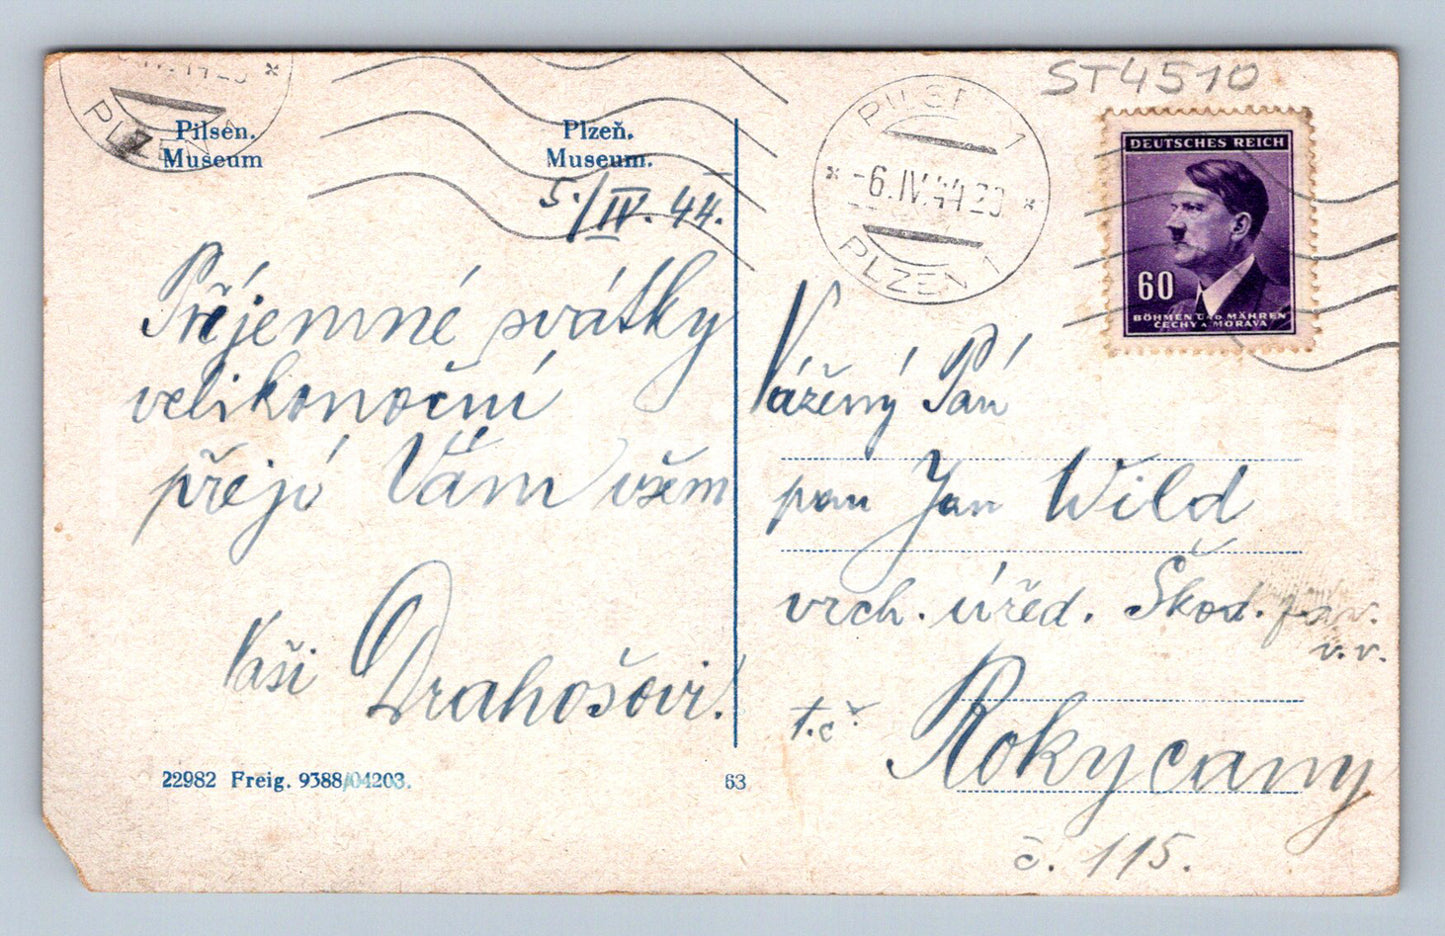 ST4510
PLZEŇ 1
Pilsen.
Museum
Plzeň.
Museum.
PILSEN 1
-6.IV.44 20
PLZEŇ 1
DEUTSCHES REICH
60
BÖHMEN UND MÄHREN
ČECHY A MORAVA
5./IV. 44.
Příjemné svátky
velikonoční
přejí Vám všem
Vaši Drahošovi.
Vážený Pán
pan Jan Wild
vrch. úřed. Škod. záv.
v.v.
t.č. Rokycany
č. 115.
22982 Freig. 9388/04203.
63